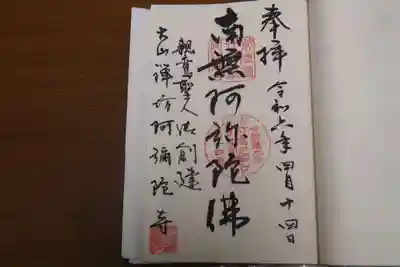 奉拝
令和六年四月十四日
南無阿弥陀佛
親鸞聖人御創建
大山禅坊阿彌陀寺